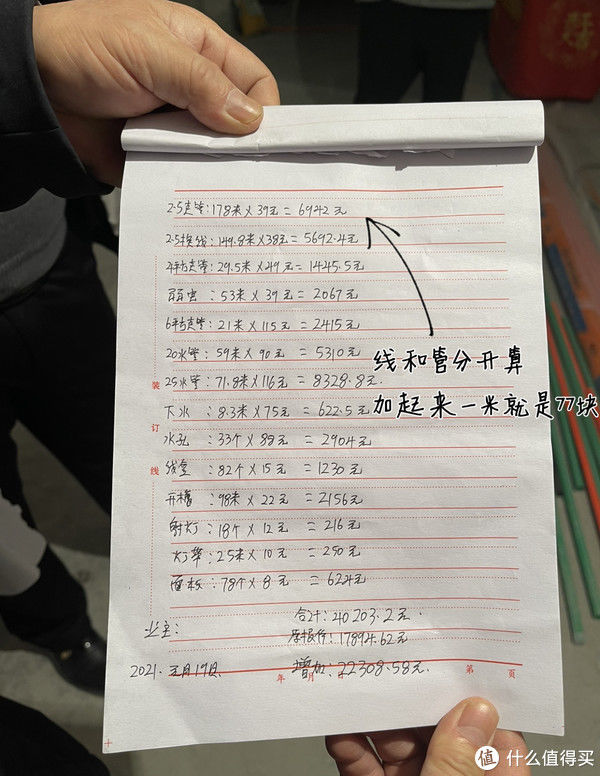 2.5走管:178米×39元=6942元
2.5换线:149.8米×38元=5692.4元
4平方走管:29.5米×49元=1445.5元
弱电:53米×39元=2067元
6平方走管:21米×115元=2415元
20水管:59米×90元=5310元
25水管:71.8米×116元=8328.8元
下水:8.3米×75元=622.5元
水孔:33个×88元=2904元
线盒:82个×15元=1230元
开槽:98米×22元=2156元
射灯:18个×12元=216元
灯带:25米×10元=250元
面板:78个×8元=624元
合计:40203.2元
业主:
原报价:17894.62元
2021.三月19日
增加:22308.58元
年 月 日
第 页
装
订
线
线和管分开算
加起来一米就是77块
值 什么值得买